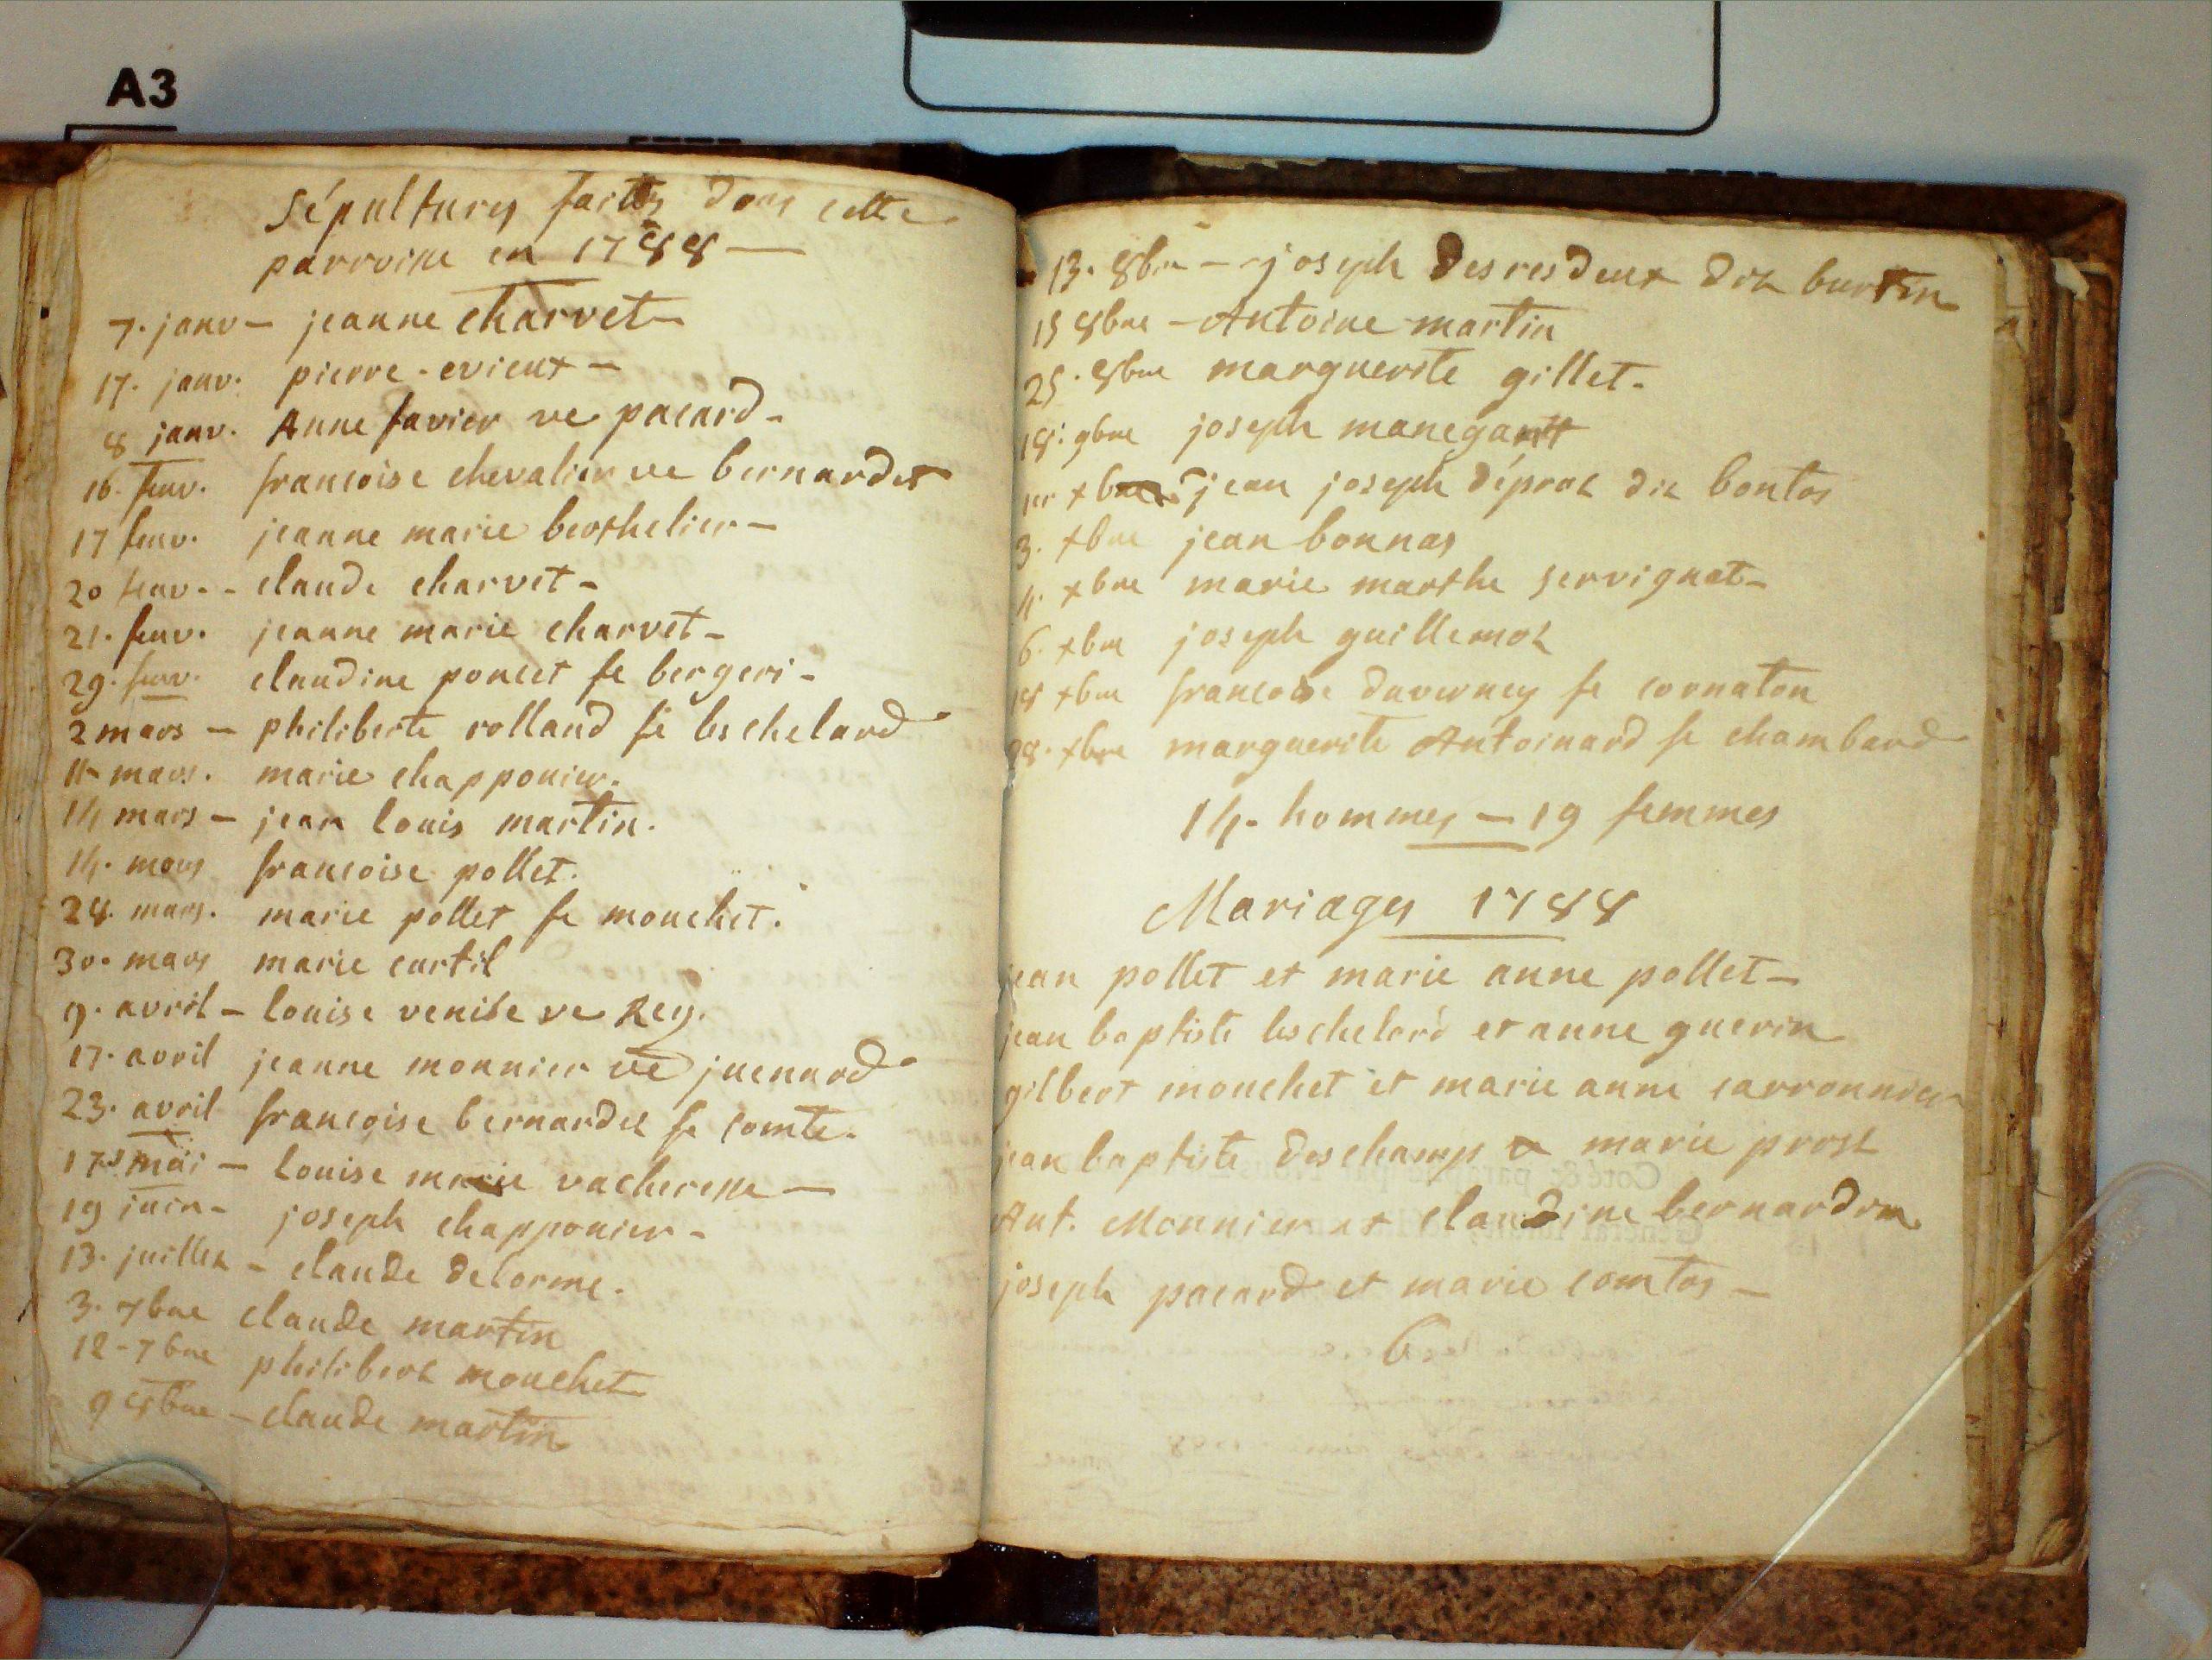 A3
Sépultures faites dans cette
parroisse en 1788 —
7. janv — jeanne charvet —
17. janv. pierre - evieux —
8 janv. Anne favier ve pacard -
16. fevv. francoise chevalier ve bernardet
17 fevv. jeanne marie berthelier —
20 fevv. - claude charvet -
21. fevv. jeanne marie charvet -
29. fevv. claudine poncet fe bergeri -
2 mars — philiberte rolland fe leschelard
11 - mars. marie chapponier.
14 mars — jean louis martin.
14. mars francoise pollet.
28. mars. marie pollet fe mouchet.
30. mars marie curtil
9. avril — louise venite ve Rey.
17. avril jeanne monnier ve juenard
23. avril francoise bernardet fe comte.
17 mai — Louise marie vacheresse —
19 juin - joseph chapponier -
13. juillet - claude delorme.
3. 7bre claude martin
12 - 7bre philibert mouchet
9 8bre - claude martin
13. 8bre — joseph desresdeux dit burtin
15 8bre - Antoine martin
25. 8bre marguerite gillet.
18. 9bre joseph manegantt
1er xbre jean joseph déprat dit bontos
3. xbre jean bonnas
4. xbre marie marthe servignat -
6. xbre joseph guillemot
18 xbre francoise duverney fe cornaton
28. xbre marguerite Antoinard fe chambard
14. hommes — 19 femmes
Mariages 1788
jean pollet et marie anne pollet —
jean baptiste leschelard et anne guerin
gilbert mouchet et marie anne carronnier
jean baptiste deschamps et marie prost
Ant. Monnier et claudine bernardon
joseph pacard et marie comtos —
6